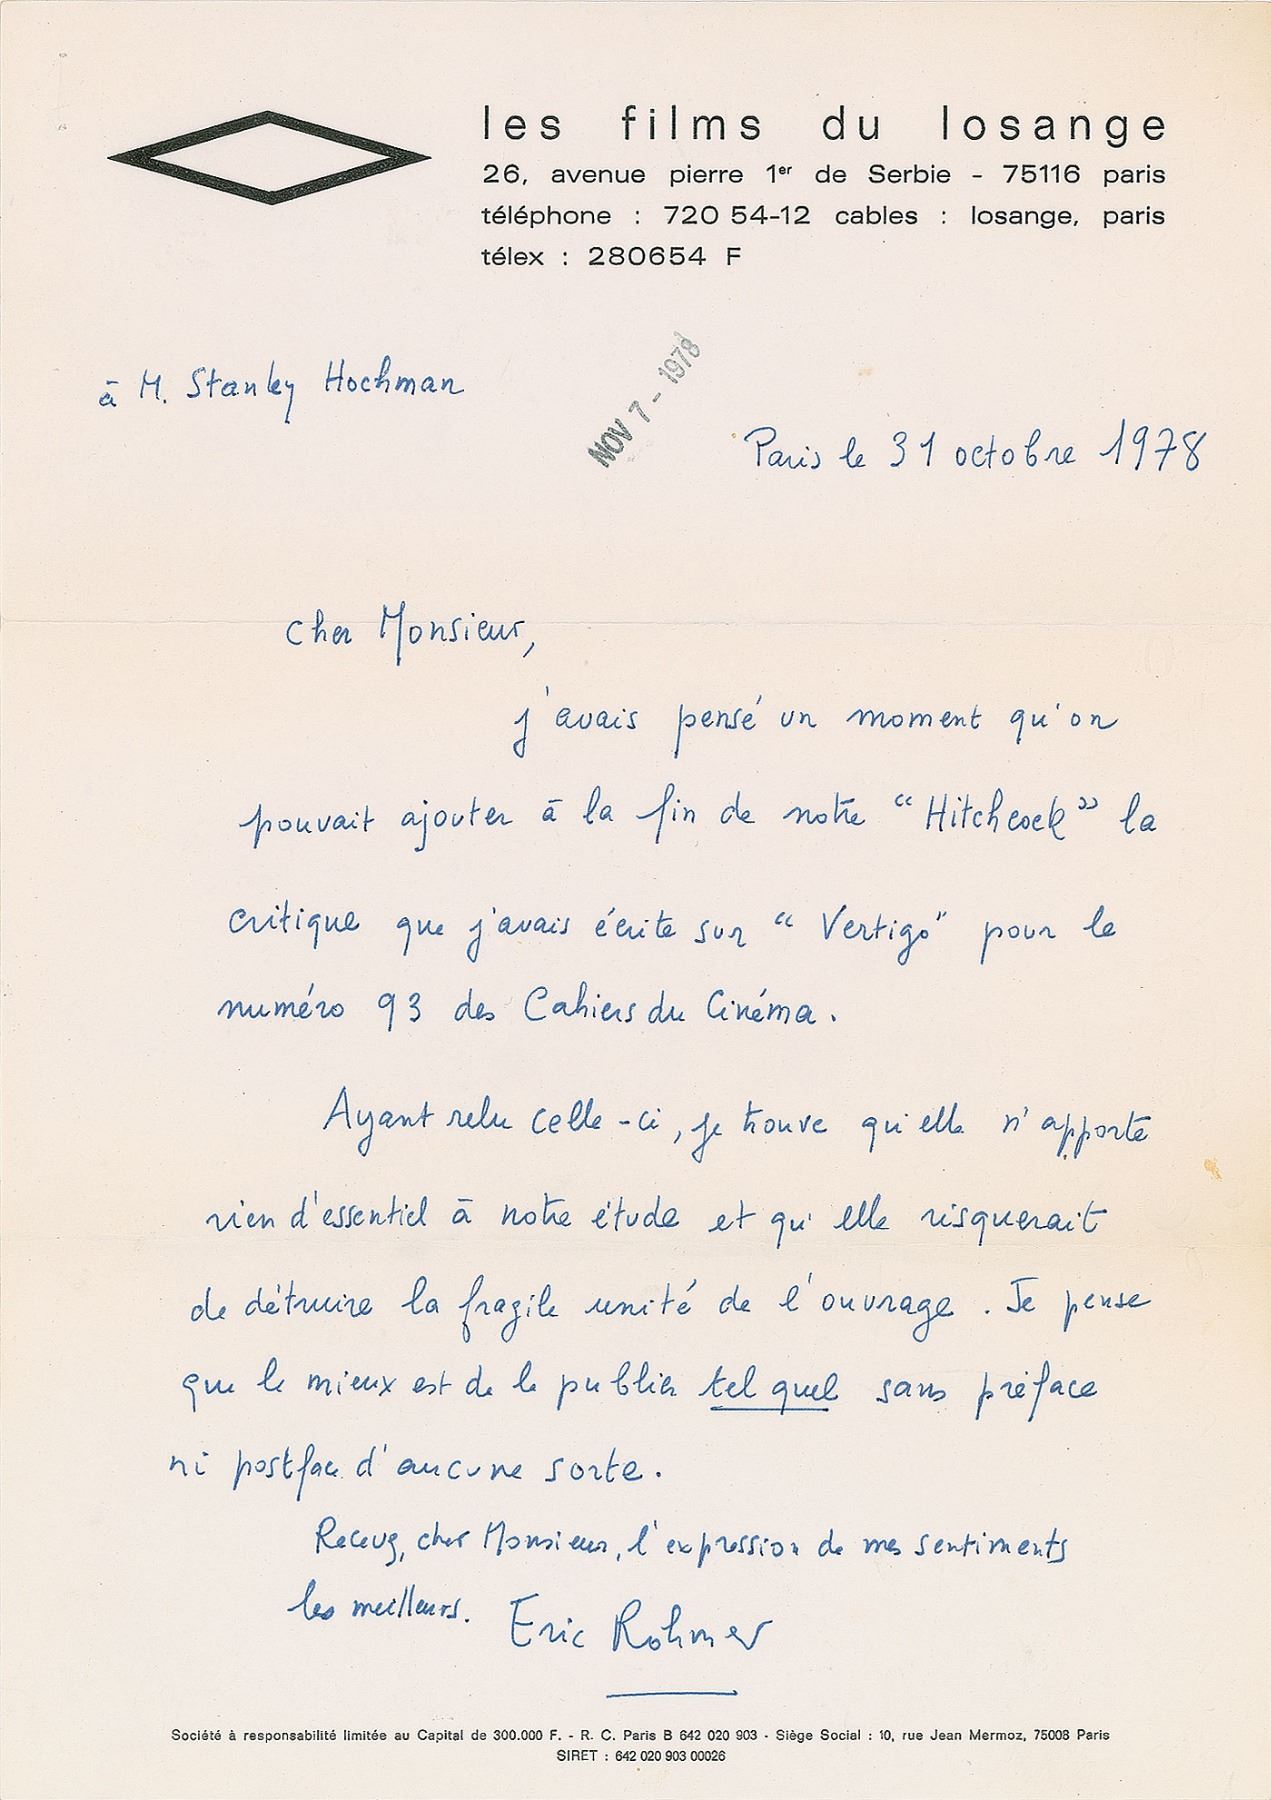 les films du losange
26, avenue pierre 1er de Serbie - 75116 paris
téléphone : 720 54-12 cables : losange, paris
télex : 280654 F
à M. Stanley Hochman
NOV 7 - 1978
Paris le 31 octobre 1978
Cher Monsieur,
j'avais pensé un moment qu'on
pouvait ajouter à la fin de notre "Hitchcock" la
critique que j'avais écrite sur "Vertigo" pour le
numéro 93 des Cahiers du Cinéma.
Ayant relu celle-ci, je trouve qu'elle n'apporte
rien d'essentiel à notre étude et qu'elle risquerait
de détruire la fragile unité de l'ouvrage. Je pense
que le mieux est de le publier tel quel sans préface
ni postface d'aucune sorte.
Recevez, cher Monsieur, l'expression de mes sentiments
les meilleurs. Eric Rohmer
Société à responsabilité limitée au Capital de 300.000 F. - R. C. Paris B 642 020 903 - Siège Social : 10, rue Jean Mermoz, 75008 Paris
SIRET : 642 020 903 00026